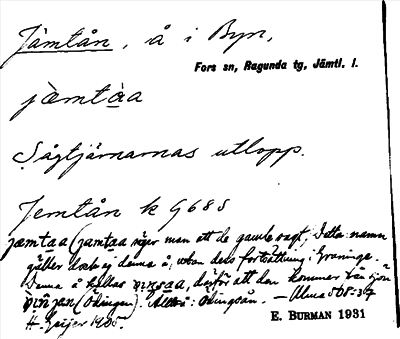 Jämtån, å i Byn,
Fors sn, Ragunda tg, Jämtl. l.
jæ̀mtàa
Sågtjärnarnas utlopp.
Jemtån k G68S
jæmtaa (jamtaa säger man att de gamla sagt; Detta namn
gäller dock ej denna å, utan dess fortsättning i Graninge.
Denna å kallas därför att den kommer från sjön
(Ökingen). Alltså: Ökingsån. — Ulma 568:37
H. Geijer 1905.
E. BURMAN 1931